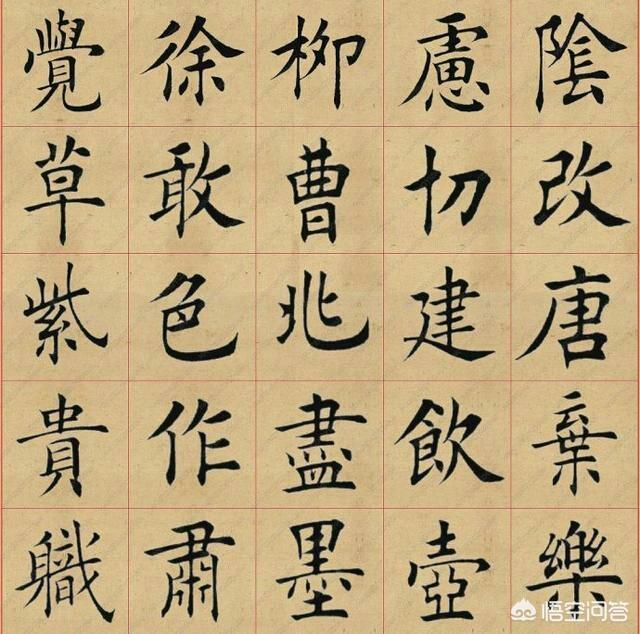 覺徐柳慮陰
草敢曹切改
紫色兆建唐
貴作盡飲棄
職肅墨壺樂
悟空问答